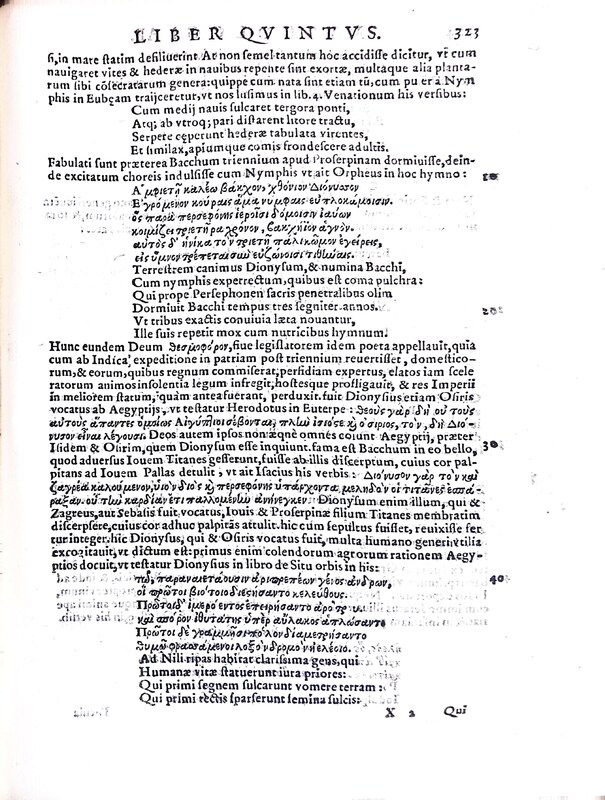 LIBER QVINTVS. 323
si, in mare statim desiluerint. At non semel tantum hoc accidisse dicitur, vt cum
nauigaret vites & hederæ in nauibus repente sint exortæ, multaque alia planta-
rum sibi cōsecratarum genera: quippe cum nata sint etiam tū, cum puer à Nym
phis in Eubœam traijceretur, vt nos lusimus in lib. 4. Venationum his versibus:
Cum medij nauis sulcaret tergora ponti,
Atq; ab vtroq; pari distarent litore tractu,
Serpere cœperunt hederæ tabulata virentes,
Et similax, apiumque comis frondescere adultis.
Fabulati sunt præterea Bacchum triennium apud Proserpinam dormiuisse, dein-
de excitatum choreis indulsisse cum Nymphis vt ait Orpheus in hoc hymno: 10
Ἀμφιετῆ καλέω βάκχον, χθόνιον Διόνυσον
Ἐγρόμενον κούραις ἅμα νύμφαις εὐπλοκάμοισιν.
ὃς παρὰ περσεφόνης ἱεροῖσι δόμοισιν ἰαύων
κοιμίζει τριετῆ χρόνον, βακχήϊον ἁγνόν.
αὐτὸς δ' ἡνίκα τὸν τριετῆ πάλι κῶμον ἐγείρεις,
εἰς ὕμνον τρέπεται σὺν εὐζώνοισι τιθήναις.
Terrestrem canimus Dionysum, & numina Bacchi,
Cum nymphis experrectum, quibus est coma pulchra:
Qui prope Persephonen sacris penetralibus olim
Dormiuit Bacchi tempus tres segniter annos. 20
Vt tribus exactis conuiuia læta nouantur,
Ille suis repetit mox cum nutricibus hymnum.
Hunc eundem Deum θεσμοφόρον, siue legislatorem idem poeta appellauit, quia
cum ab Indica expeditione in patriam post triennium reuertisset, domestico-
rum, & eorum, quibus regnum commiserat, perfidiam expertus, elatos iam scele
ratorum animos insolentia legum infregit, hostesque profligauit, & res Imperii
in meliorem statum, quàm antea fuerant, perduxit. fuit Dionysius etiam Osiris
vocatus ab Aegyptijs, vt testatur Herodotus in Euterpe: θεοὺς γὰρ δὴ οὐ τοὺς
αὐτοὺς ἅπαντες ὁμοίως Αἰγύπτιοι σέβονται, πλὴν ἴσιός τε κỳ ὀσίριος, τὸν, δὴ Διό-
νυσον εἶναι λέγουσι. Deos autem ipsos non æquè omnes colunt Aegyptij, præter
Isidem & Osirim, quem Dionysum esse inquiunt. fama est Bacchum in eo bello, 30
quod aduersus Iouem Titanes gesserunt, fuisse ab illis discerptum, cuius cor pal-
pitans ad Iouem Pallas detulit, vt ait Isacius his verbis: Διόνυσον γὰρ τὸν καὶ
ζαγρέα καλούμενον, υἱὸν διὸς κỳ περσεφόνης ὑπάρχοντα, μεληδὸν οἱ τιτᾶνες ἐσπά-
ραξαν. οὗ τὴν καρδίαν ἔτι παλλομένην ἀνήνεγκεν. Dionysum enim illum, qui &
Zagreus, aut Sebasis fuit vocatus, Iouis & Proserpinæ filium Titanes membratim
discerpsere, cuius cor adhuc palpitās attulit. hic cum sepultus fuisset, reuixisse fer
tur integer. hic Dionysus, qui & Osiris vocatus fuit, multa humano generi vtilia
excogitauit, vt dictum est: primus enim colendorum agrorum rationem Aegy-
ptios docuit, vt testatur Dionysius in libro de Situ orbis in his:
40
οἳ πρῶτοι βιότοιο διεστήσαντο κελεύθους.
Πρῶτοι δ' ἱμερόεντος ἐπειρήσαντο ἀρότρου.
Πρῶτοι δὲ γραμμῇσι πόλον διεμετρήσαντο
θυμῷ φρασσάμενοι λοξὸν δρόμον ἠελίοιο.
Ad Nili ripas habitat clarissima gens, qui
Humanæ vitæ statuerunt iura priores:
Qui primi segnem sulcarunt vomere terram:
Qui primi rectis sparserunt semina sulcis:
X 2 Qui